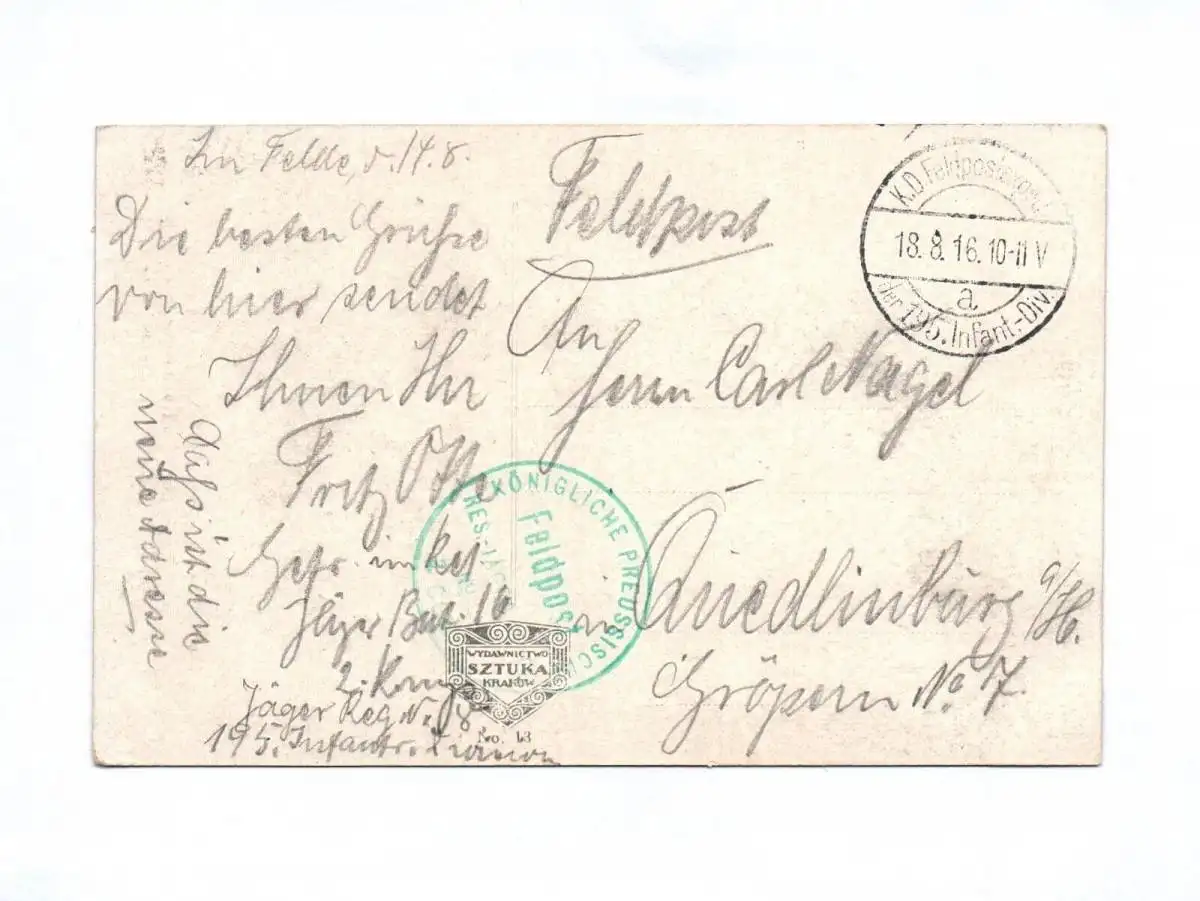 Im Felde, d. 14.8.
Die besten Grüsse
von hier sendet
Ihnen Ihr
Fritz Otte
Gefr. im Res.
Jäger Bat. 16
2. Komp
Jäger Reg. N. 8
195. Infantr. Division
ist die
neue Adresse
Feldpost
An
Herrn Carl Nagel
in Quedlinburg a/H.
Gröpern No 17.
K.D. Feldpostexped.
18.8.16.10-11 V
a
der 195. Infant.-Div.
KÖNIGLICHE PREUSSISCH
Feldpost
RES.-JÄG
WYDAWNICTWO
SZTUKA
KRAKÓW
No. 13